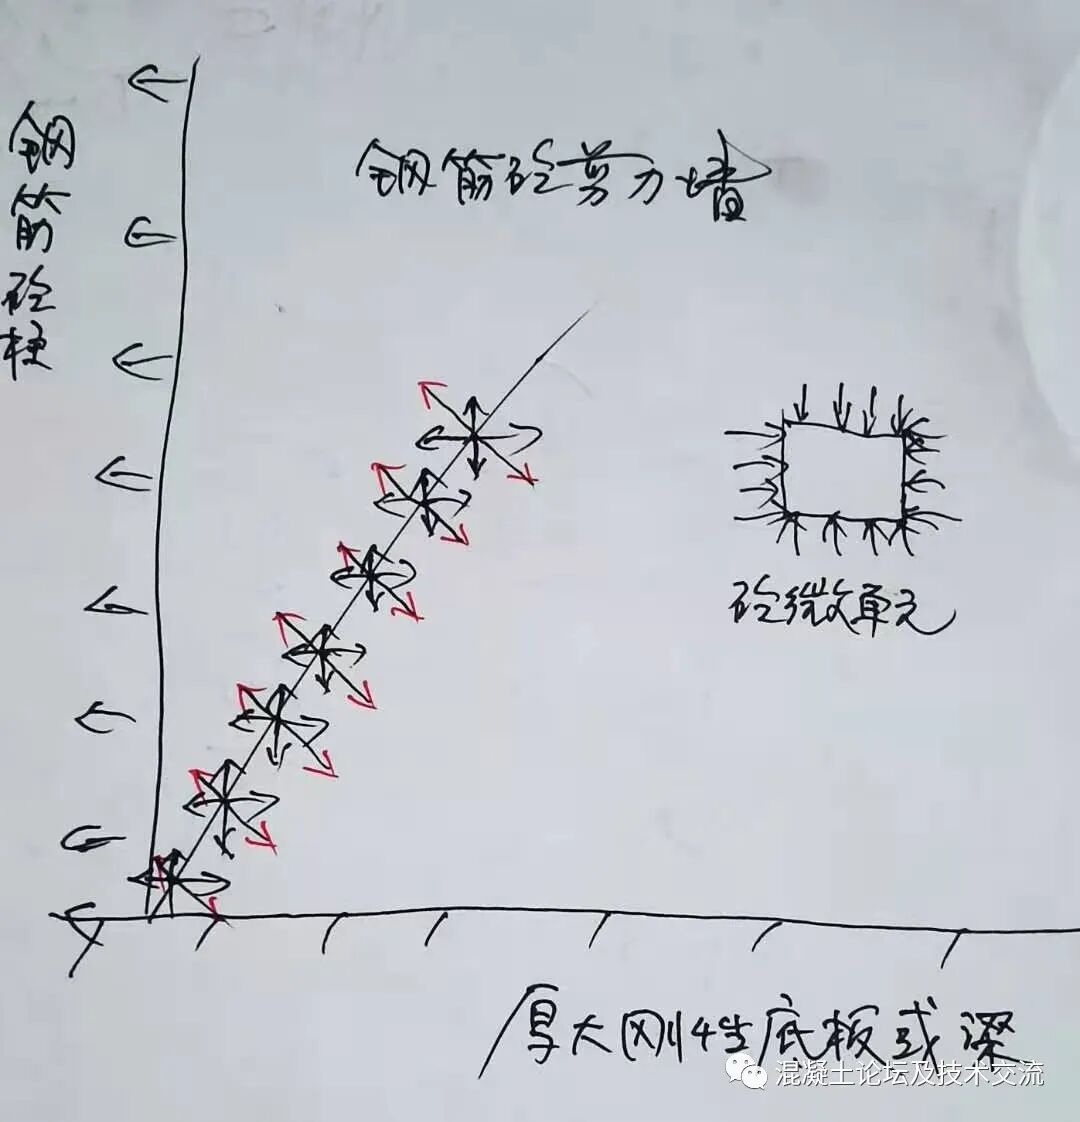 钢筋砼柱
钢筋砼剪力墙
砼微单元
厚大刚性底板或梁
混凝土论坛及技术交流